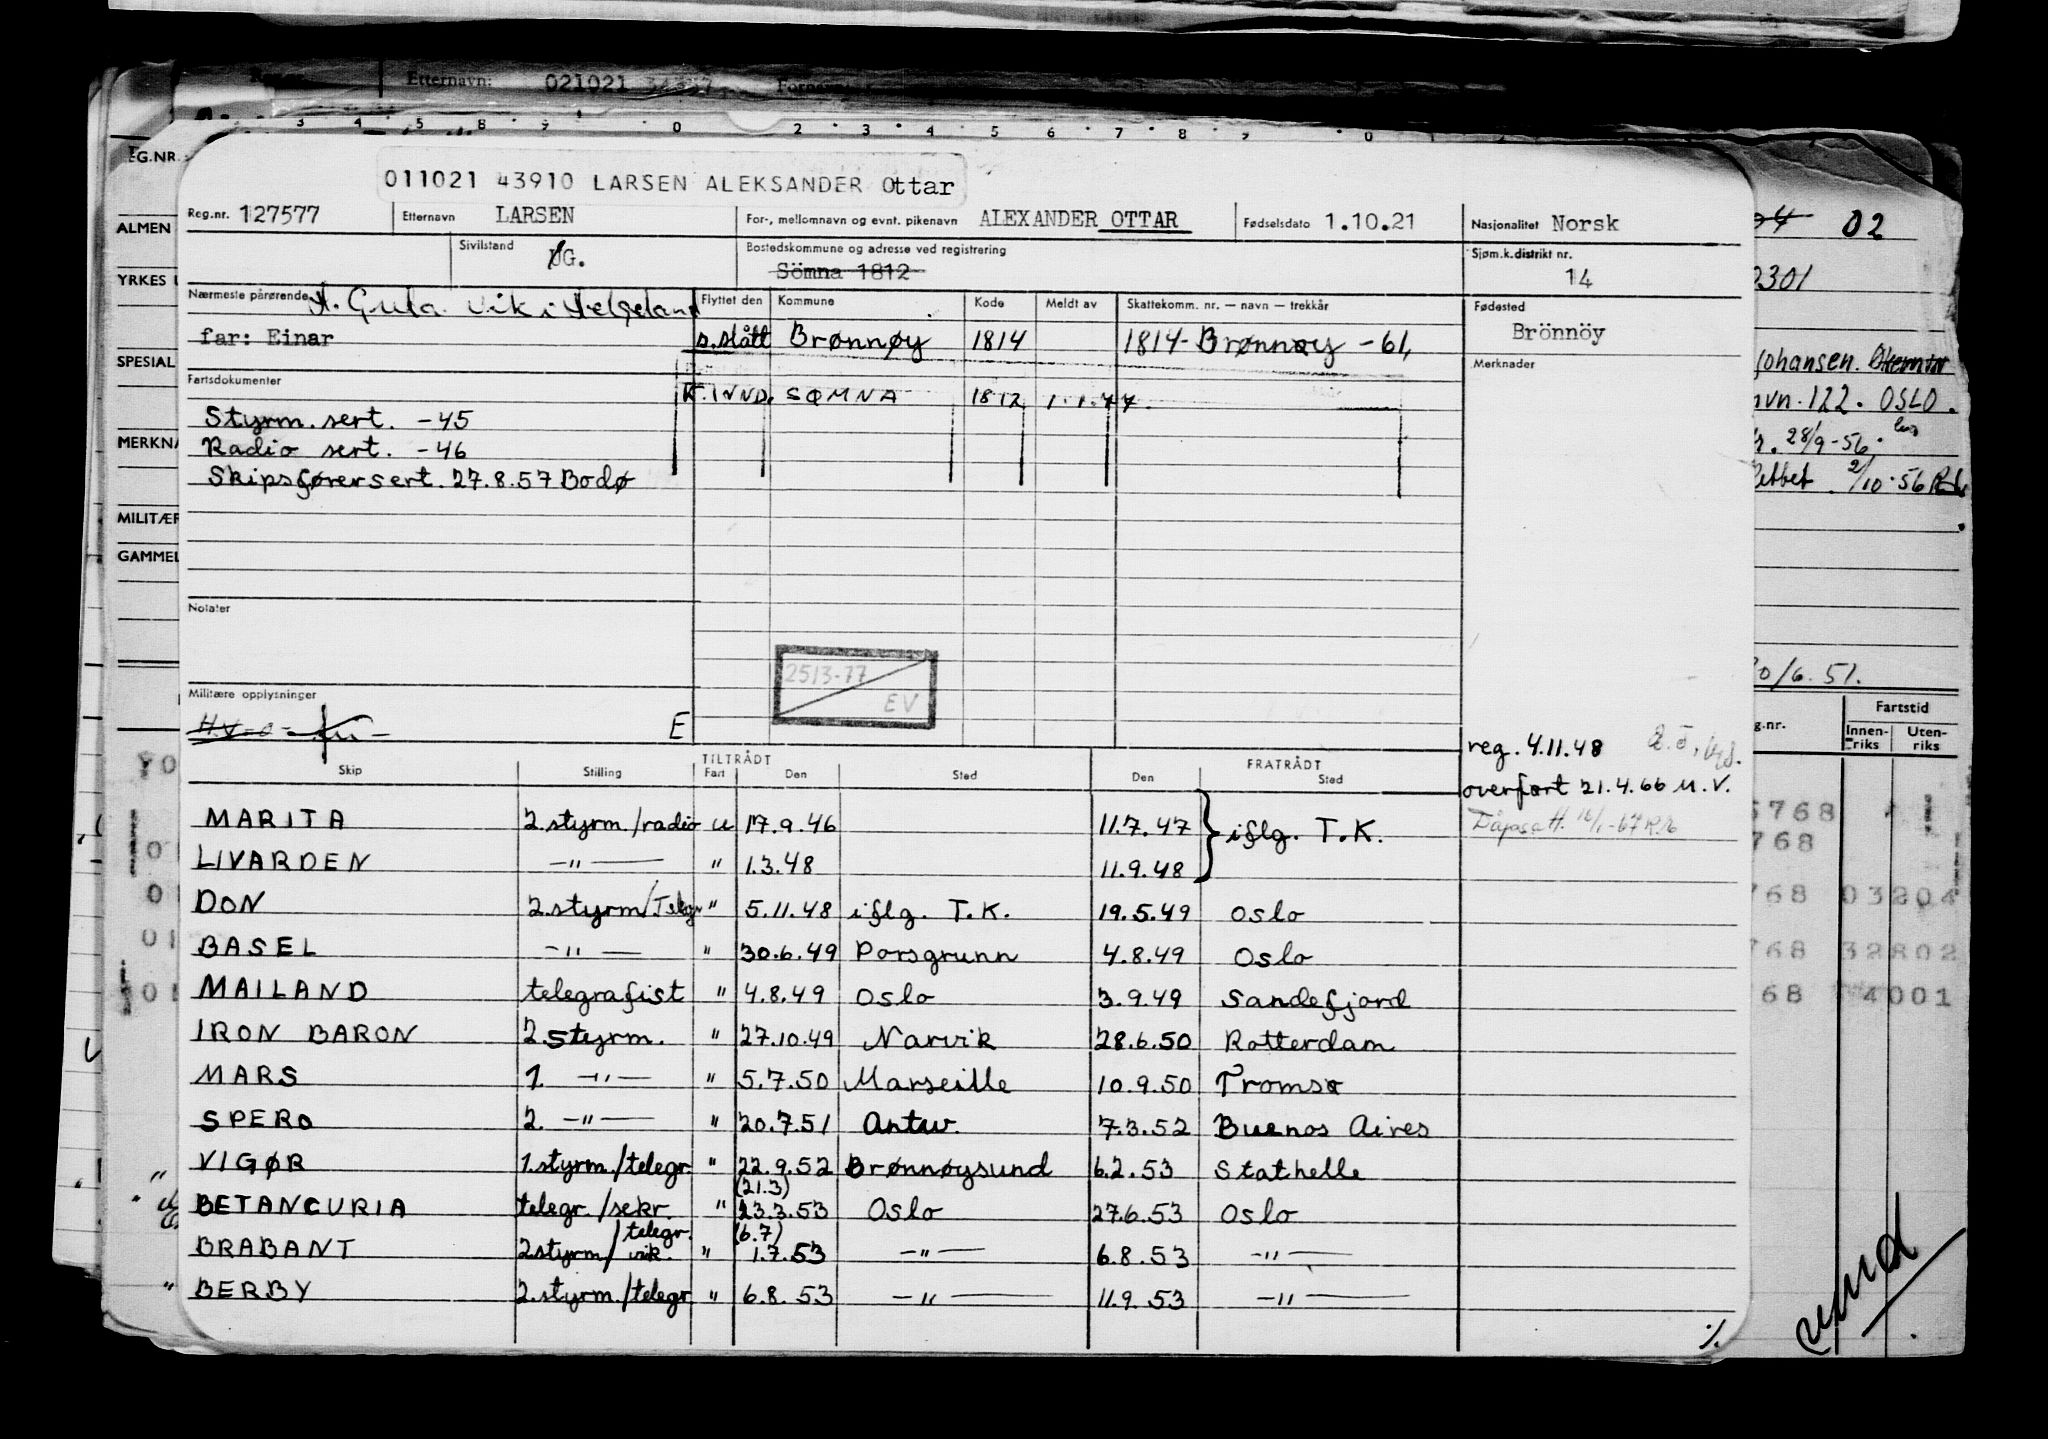 Etternavn: 021021
011021 43910 LARSEN ALEKSANDER Ottar
Reg.nr. 127577 Etternavn LARSEN For-, mellomnavn og evnt. pikenavn ALEXANDER OTTAR Fødselsdato 1.10.21 Nasjonalitet Norsk
Sivilstand UG. Bostedskommune og adresse ved registrering Sömna 1812 Sjøm.k.distrikt nr. 14
Nærmeste pårørende A. Gula. Vik i Helgeland Flyttet den Kommune Kode Meldt av Skattekomm. nr. — navn — trekkår Fødested
far: Einar s.slått Brønnøy 1814 1814-Brønnøy -61, Brönnöy
Fartsdokumenter Merknader
K.INND. SØMNA 1812 1.1.77.
Styrm. sert. -45
Radio sert. -46
Skipsførersert. 27.8.57 Bodø
Notater
2513-77
EV
Militære opplysninger
E
reg. 4.11.48
overført 21.4.66 M.V.
TILTRÅDT FRATRÅDT
Skip Stilling Fart Den Sted Den Sted
MARITA 2.styrm./radio u 17.9.46 11.7.47 } iflg. T.K.
LIVARDEN -"- " 1.3.48 11.9.48
DON 2.styrm/Telegr " 5.11.48 iflg. T.K. 19.5.49 Oslo
BASEL -"- " 30.6.49 Porsgrunn 4.8.49 Oslo
MAILAND telegrafist " 4.8.49 Oslo 3.9.49 Sandefjord
IRON BARON 2.styrm. " 27.10.49 Narvik 28.6.50 Rotterdam
MARS 1. -"- " 5.7.50 Marseille 10.9.50 Tromsø
SPERO 2. -"- " 20.7.51 Antw. 7.3.52 Buenos Aires
VIGØR 1.styrm./telegr. " 22.9.52 Brønnøysund 6.2.53 Stathelle
(21.3)
BETANCURIA telegr./sekr. " 23.3.53 Oslo 27.6.53 Oslo
(6.7)
BRABANT 2styrm/telegr. vik. " 1.7.53 -"- 6.8.53 -"-
BERBY 2.styrm./telegr. " 6.8.53 -"- 11.9.53 -"-
%
EG.NR.
ALMEN
YRKES
SPESIAL
MERKNA
MILITÆR
GAMMEL
02
2301
Johansen.
122. OSLO.
28/9-56.
2/10-56
/6.51.
g.nr. Fartstid
Innen-riks Uten-riks
5768
768
768 03204
768 32802
768 4001